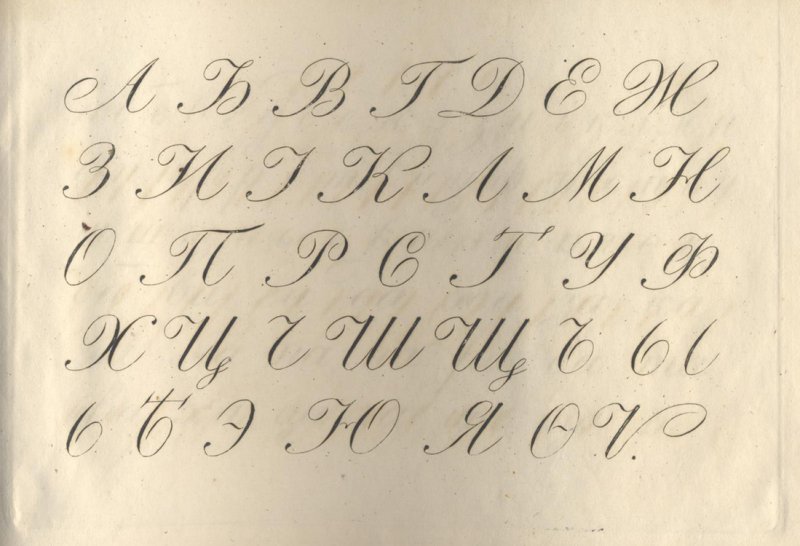 А Б В Г Д Е Ж
З И І К Л М Н
О П Р С Т У Ф
Х Ц Ч Ш Щ Ъ Ы
Ь Ѣ Э Ю Я Ѳ Ѵ.